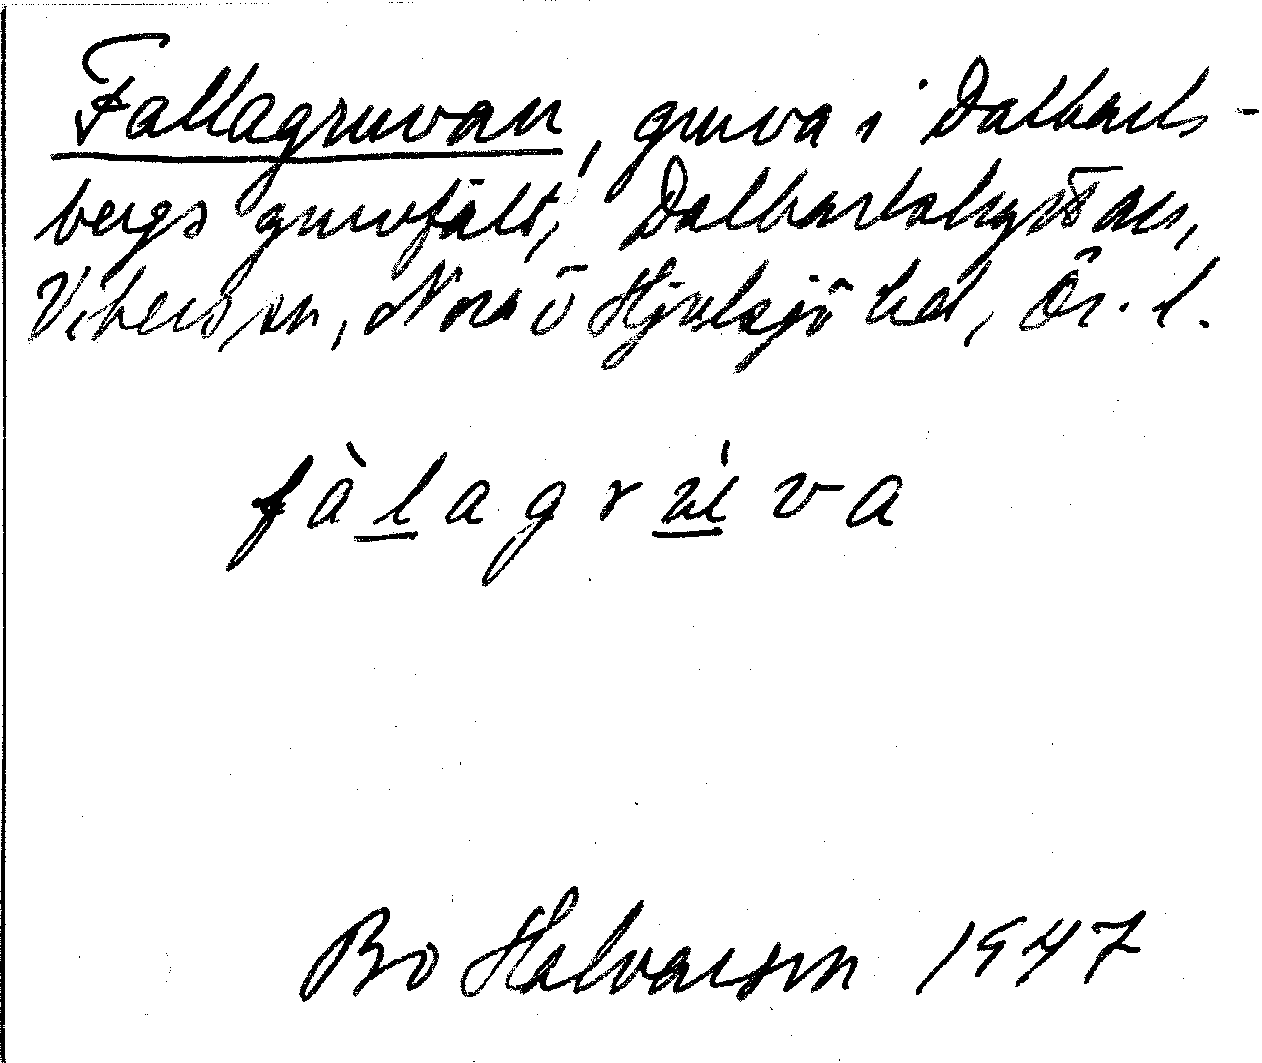 Fallagruvan, gruva i Dalkarls-
bergs gruvfält, Dalkarlshyttan,
Vikers sn, Nora o Hjulsjö bsl, Ör. l.
fàlagrúva
Bo Halvarson 1947